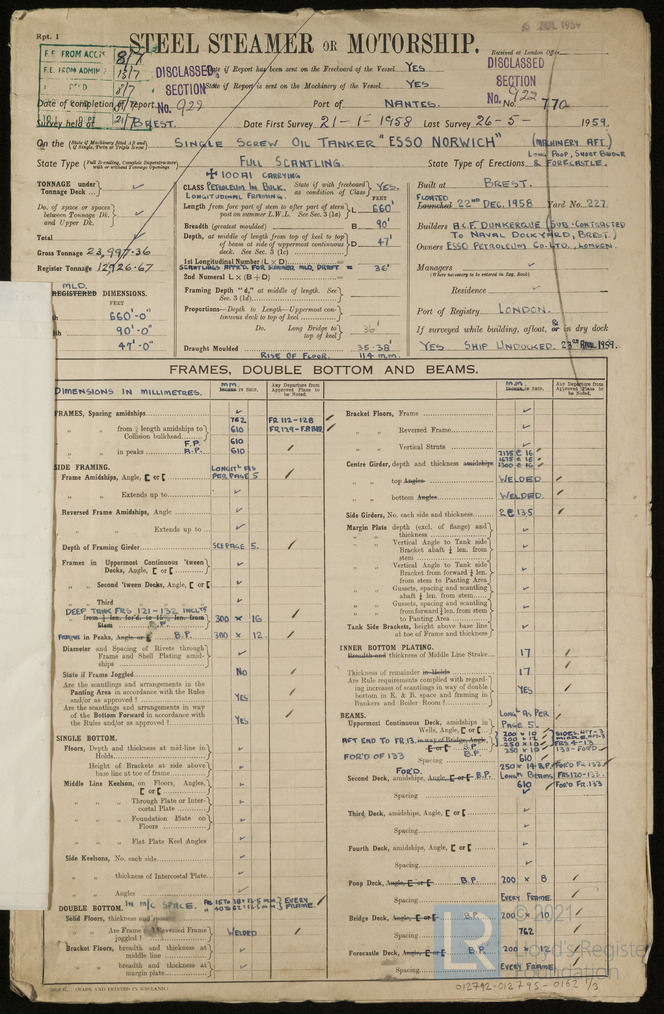 Rpt. 1
6 JUL 1959
STEEL STEAMER OR MOTORSHIP.
Received at London Office
F.E. FROM ACCTS 8/7
F.E. FROM ADMIN 13/7
8/7
21/7
DISCLASSED SECTION No. 922
DISCLASSED SECTION No. 922
State if Report has been sent on the Freeboard of the Vessel YES
State if Report is sent on the Machinery of the Vessel YES
Date of completion of report
Port of NANTES.
No. 770
Survey held at BREST.
Date First Survey 21-1-1958 Last Survey 26-5- 1959.
On the (State if Machinery fitted Aft and if Single, Twin or Triple Screw) SINGLE SCREW OIL TANKER "ESSO NORWICH" (MACHINERY AFT.)
State Type (Full Scantling, Complete Superstructure with or without Tonnage Openings) FULL SCANTLING.
State Type of Erections LONG POOP, SHORT BRIDGE & FORECASTLE.
TONNAGE under Tonnage Deck ...
Do. of space or spaces between Tonnage Dk. and Upper Dk.
Total
Gross Tonnage 23,997.36
Register Tonnage 12926.67
MLD.
REGISTERED DIMENSIONS.
FEET
660'-0"
90'-0"
47'-0"
✠ 100A1 CARRYING
CLASS PETROLEUM IN BULK. State if with freeboard as condition of Class YES.
LONGITUDINAL FRAMING.
FEET
Length from fore part of stem to after part of stern post on summer L.W.L. See Sec. 3 (1a) L 660'
Breadth (greatest moulded) B 90'
Depth, at middle of length from top of keel to top of beam at side of uppermost continuous deck. See Sec. 3 (1c) D 47'
1st Longitudinal Number (L × D)
SCANTLINGS APP'D. FOR SUMMER MLD. DRAFT = 36'
2nd Numeral L × (B + D)
Framing Depth "d," at middle of length. See Sec. 3 (1d)
Proportions—Depth to Length—Uppermost continuous deck to top of keel
Do. Long Bridge to top of keel 36'
Draught Moulded 35.38'
RISE OF FLOOR. 114 m.m.
Built at BREST.
FLOATED
Launched 22ND DEC. 1958 Yard No. 227.
Builders A.C.F. DUNKERQUE (SUB-CONTRACTED TO NAVAL DOCKYARD, BREST.)
Owners ESSO PETROLEUM CO. LTD., LONDON.
Managers
(Where necessary to be entered in Reg. Book)
Residence
Port of Registry LONDON.
If surveyed while building, afloat, & or in dry dock
YES SHIP UNDOCKED. 23RD APRIL 1959.
FRAMES, DOUBLE BOTTOM AND BEAMS.
DIMENSIONS IN MILLIMETRES.
m.m.
Any Departure from Approved Plans to be Noted.
FRAMES, Spacing amidships 762 FR 112-128
" " from ⅕ length amidships to Collision bulkhead 610
" " in peaks F.P. 610
A.P. 610
SIDE FRAMING.
Frame Amidships, Angle, [ or [ LONGITLS AS PER PAGE 5
" " Extends up to
Reversed Frame Amidships, Angle
" " Extends up to
Depth of Framing Girder SEE PAGE 5.
Frames in Uppermost Continuous 'tween Decks, Angle, [ or [
" " Second 'tween Decks, Angle, [ or [
" " Third
DEEP TANK FRS 121-132 INCLVE
B.P. 300 × 16
FRAMING in Peaks, Angle or [ B.P. 300 × 12
Diameter and Spacing of Rivets through Frame and Shell Plating amidships
State if Frame Joggled NO
Are the scantlings and arrangements in the Panting Area in accordance with the Rules and/or as approved ? YES
Are the scantlings and arrangements in way of the Bottom Forward in accordance with the Rules and/or as approved ? YES
SINGLE BOTTOM.
Floors, Depth and thickness at mid-line in Holds
Height of Brackets at side above base line at toe of frame
Middle Line Keelson, on Floors, Angles, [ or [
" " Through Plate or Intercostal Plate
" " Foundation Plate on Floors
" " Flat Plate Keel Angles
Side Keelsons, No. each side
" " thickness of Intercostal Plate
" " Angles
DOUBLE BOTTOM. IN M/C SPACE.
EVERY FRAME.
Solid Floors, thickness and
Are Frame & Reversed Frame joggled ? WELDED
Bracket Floors, breadth and thickness at middle line
" " breadth and thickness at margin plate
m.m.
Any Departure from Approved Plans to be Noted.
Bracket Floors, Frame
" " Reversed Frame
" " Vertical Struts
Centre Girder, depth and thickness amidships
" " top Angles WELDED
" " bottom Angles WELDED.
Side Girders, No. each side and thickness 2 @ 13.5
Margin Plate depth (excl. of flange) and thickness
" " Vertical Angle to Tank side Bracket abaft ¼ len. from stem
" " Vertical Angle to Tank side Bracket from forward ¼ len. from stem to Panting Area
" " Gussets, spacing and scantling abaft ¼ len. from stem
" " Gussets, spacing and scantling from forward ¼ len. from stem to Panting Area
Tank Side Brackets, height above base line at toe of Frame and thickness
INNER BOTTOM PLATING.
Breadth and thickness of Middle Line Strake 17
Thickness of remainder in Holds 17
Are Rule requirements complied with regarding increases of scantlings in way of double bottom in E. & B. space and framing in Bunkers and Boiler Room ? YES
BEAMS. LONGL AS PER PAGE 5.
Uppermost Continuous Deck, amidships in Wells, Angle, [ or [
AFT END TO FR.13. in way of Bridge, Angle, [ or [ B.P.
200 × 10
200 × 12
250 × 10
250 × 10
FRS 4-13
FOR'D OF 133 B.P.
Spacing 610
250 × 14 B.P. FOR'D FR.133
FOR'D.
Second Deck, amidships, Angle, [ or [ B.P. LONGL BEAMS FRS 120-133.
Spacing 610 FOR'D FR.133
Third Deck, amidships, Angle, [ or [
Spacing
Fourth Deck, amidships, Angle, [ or [
Spacing
Poop Deck, Angle, [ or [ B.P. 200 × 8
Spacing EVERY FRAME.
Bridge Deck, Angle, [ or [ B.P. 200 × 10
Spacing 762
Forecastle Deck, Angle, [ or [ B.P. 200 × 12
Spacing EVERY FRAME.
(MADE AND PRINTED IN ENGLAND.)
LR
© 2021
Lloyd's Register Foundation
012792-012795-0162 1/3